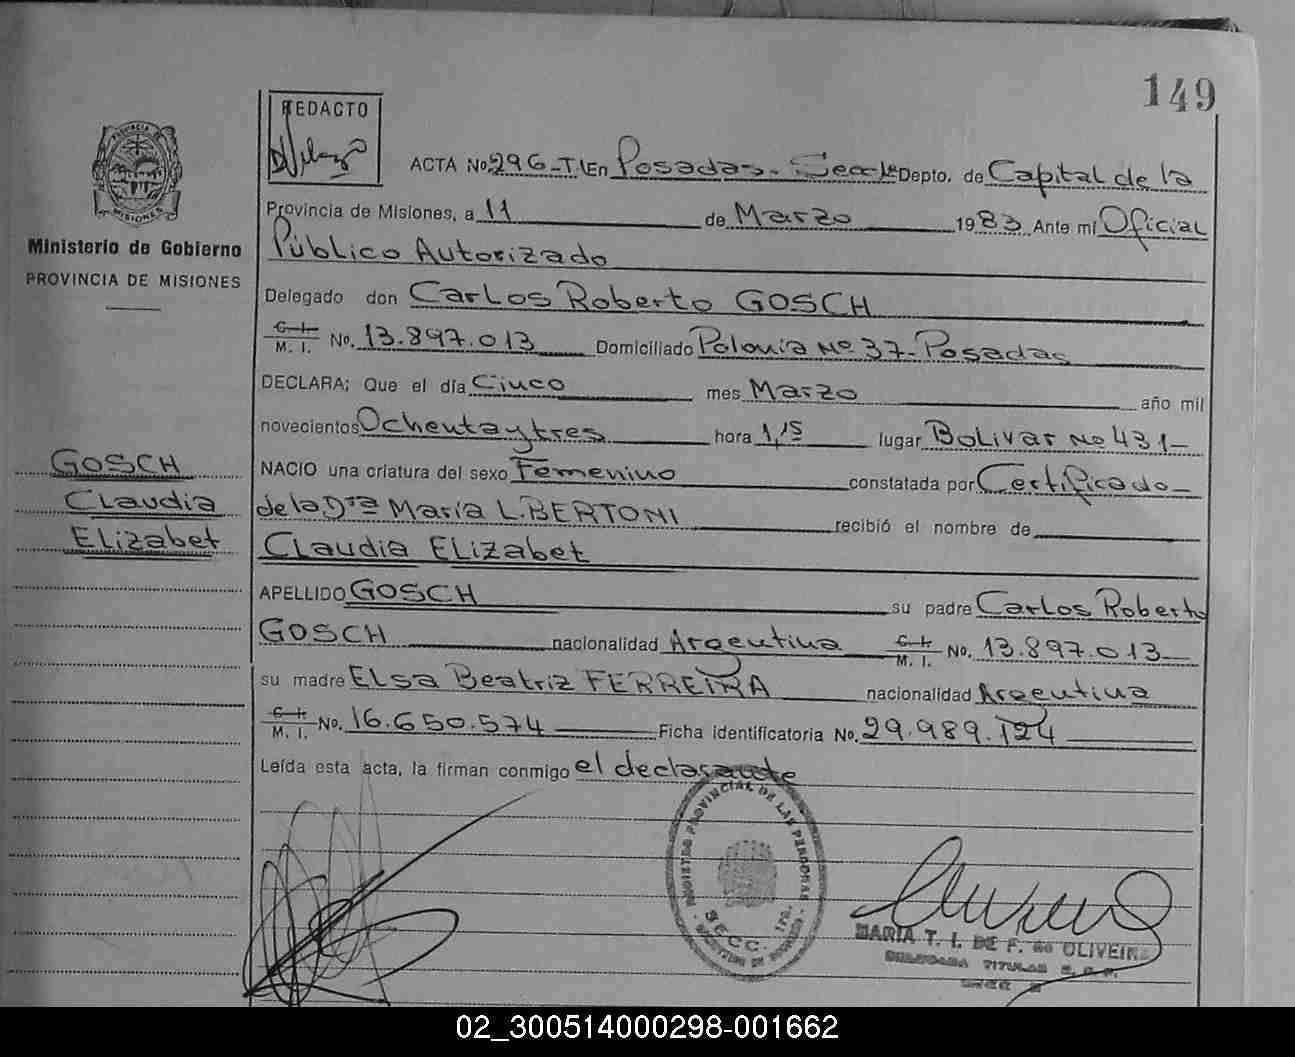 149
REDACTO
PROVINCIA DE
MISIONES
Ministerio de Gobierno
PROVINCIA DE MISIONES
GOSCH
Claudia
Elizabet
ACTA No. 296-T.I En Posadas - Secc 1ª Depto. de Capital de la
Provincia de Misiones, a 11 de Marzo 1983 Ante mi Oficial
Público Autorizado
Delegado don Carlos Roberto GOSCH
C. I.
M. I. No. 13.897.013 Domiciliado Polonia Nº 37-Posadas
DECLARA; Que el día Cinco mes Marzo año mil
novecientos Ochenta y tres hora 1,15 lugar Bolivar Nº 431-
NACIO una criatura del sexo Femenino constatada por Certificado-
de la Drª María L. BERTONI recibió el nombre de
Claudia Elizabet
APELLIDO GOSCH su padre Carlos Roberto
GOSCH nacionalidad Argentina C. I. M. I. No. 13.897.013-
su madre Elsa Beatriz FERREIRA nacionalidad Argentina
C. I.
M. I. No. 16.650.574 Ficha identificatoria No. 29.989.124
Leída esta acta, la firman conmigo el declarante
REGISTRO PROVINCIAL DE LAS PERSONAS
SECC. 1ra.
MARIA T. I. DE F. de OLIVEIRA
DELEGADA TITULAR
02_300514000298-001662